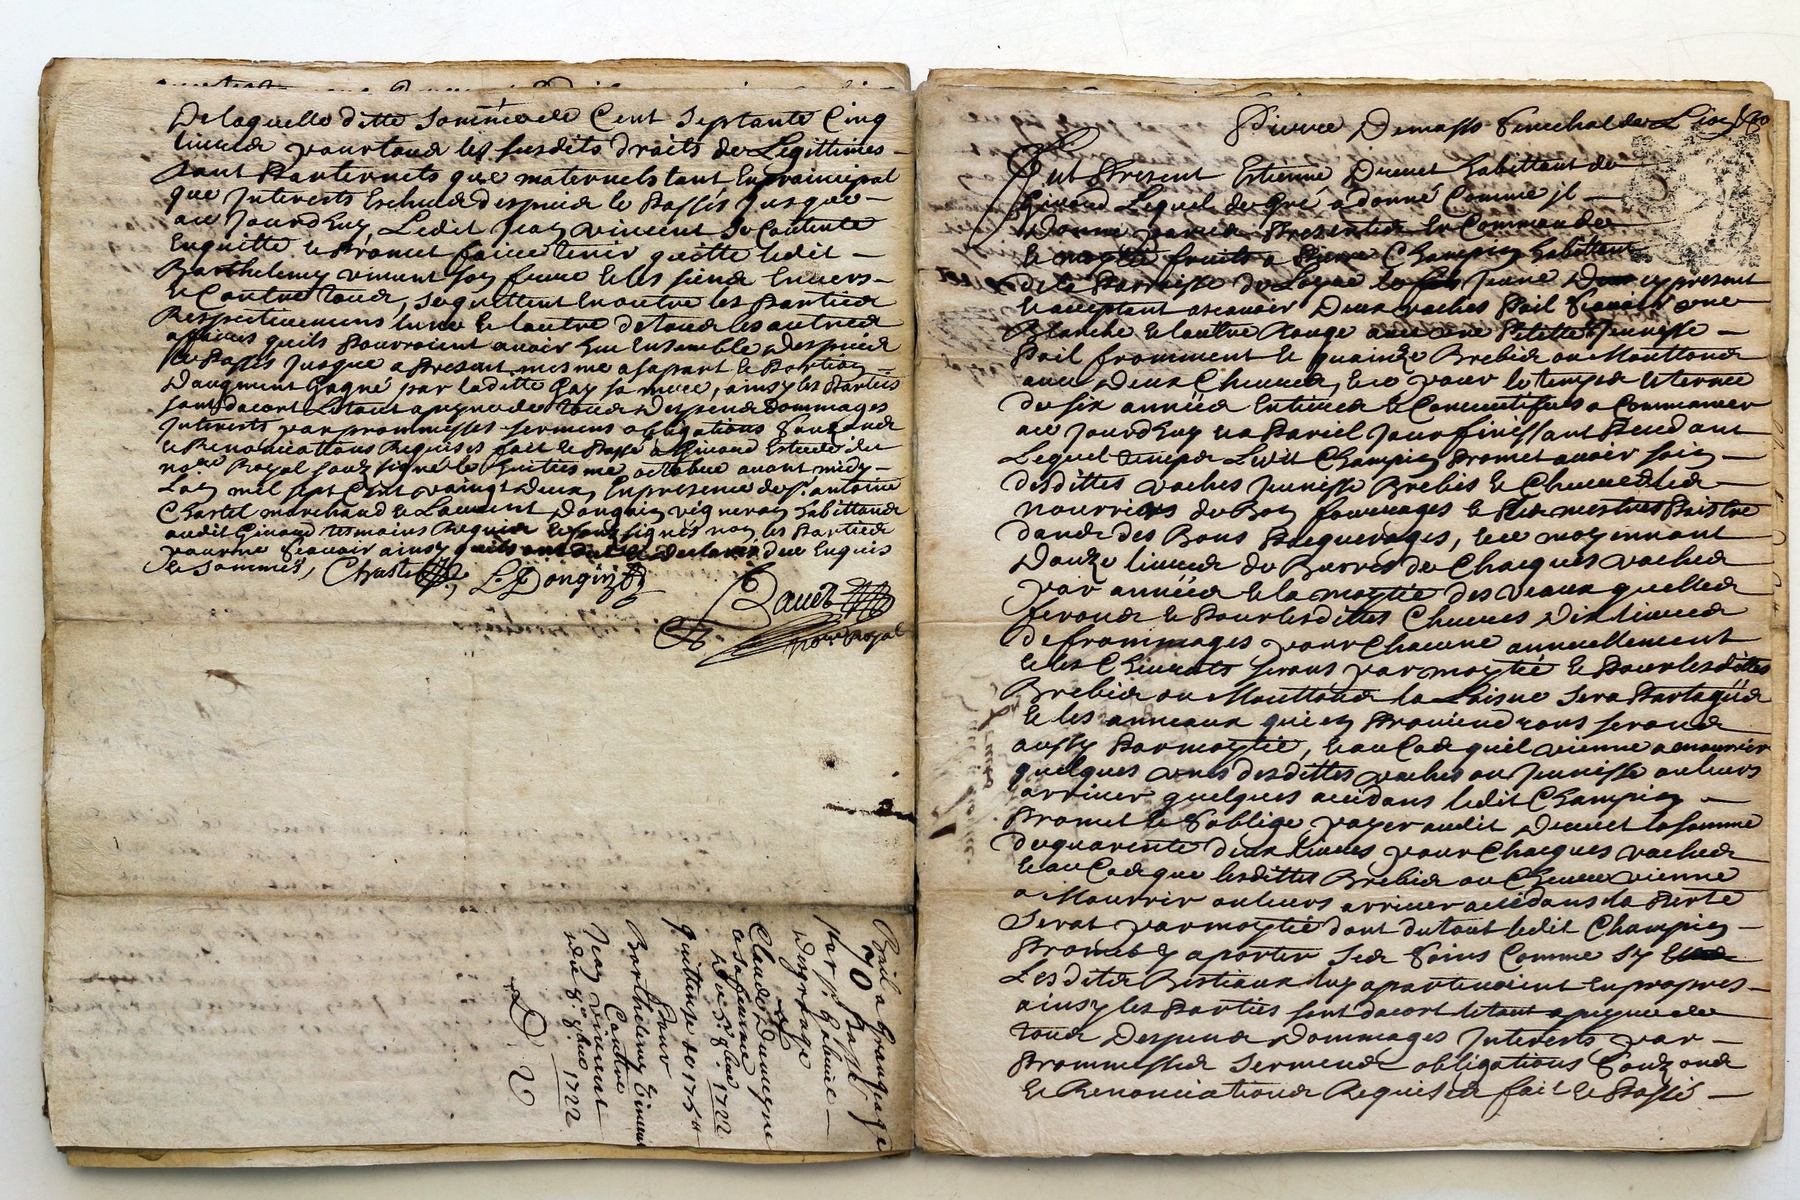 De laquelle ditte Somme de Cent Septante Cinq
livres pour tous les susdits droits de Legittimes
tant Paternels que maternels tant en principal
que Interests Escheus despuis le Passés jusques
au jourdhuy, Ledit Jean vincent se Contente
Enquitte & Promet faire tenir quitte ledit
Barthelemy vincent son frere & les siens Envers
& Contre tous, se quittent En outre les Parties
Respectivement lune & lautre de tous les autres
affaires quils Pourroient avoir Eue Ensemble despuis
le Passés jusque a Present mesme a sa part & Portion
Daugment gagné par laditte Gay sa mere, ainsy les Parties
sont dacort & tout a peyne de tous Despens dommages
Interests par prommesses sermens obligations
& Renonciations Requises fait & Passé a Givord Estude du
nore Royal souz signé le huitiesme octobre avant midy
Lan mil sept Cent vaingt deux, En presence de Sr. antoine
Chastel marchand & Laurent Donguin vigneron habittans
audit Givord tesmoins Requis & souz signés non les Parties
pour ne scavoir ainsy quils ont dit & declaré de ce Enquis
& sommés, Chastel, L. Donguin
nore royal
Bail a Grangeage
70 Passé
par
Desgrange
a
Claude Dumeyne
a sa femme
du 5e 8bre 1722
quittense de 175 ll
Pour
Barthelemy Vincent
Contre
Jean vincent
du 8e 8bre 1722
D. V
Pierre Demasso senechal de Lion
Fut Present Estienne Drevet habittant de
Givord Lequel de Gré a donné Comme jl
Donne par ces Presentes En Commande
& moytié fruits a Pierre Champin habittant
de la Parroisse de Loyre le jeune cy present
& acceptent ascavoir Deux vaches Poil scavoir une
Blanche & lautre Rouge avec une Petitte Jeunesse
Poil fromment & quainze Brebis ou Mouttons
avec Deux Chevres, & ce pour le temps & terme
de six années Entieres & Consecutifves a Commancer
au jourdhuy & a Pariel jour finissant Pendant
Lequel temps Ledit Champin Promet avoir soin
desdittes vaches Jeunesse Brebis & Chevres les
nourrirs de Bon fourrages & les mestres Paistre
dans des Bons Pasquerages, & ce moyennant
Douze livres de Burres de Chacques vaches
par années & la moytié des veaux quelles
feront & Pour lesdittes Chevres Dix livres
de frommages pour Chacune annuellement
& les Chevrots seront par moytié & Pour lesdittes
Brebis ou Mouttons la Laisne sera Partagée
& les anneaux quien Proviendront seront
aussy Par moytié, & au Cas quil vienne a mourrir
quelques unes desdittes vaches ou Jeunesse ou leurs
arriver quelques accidans ledit Champin
Promet & soblige payer audit Drevet la somme
de quarente deux livres pour Chacques vaches
& au Cas que lesdittes Brebis ou Chevres vienne
a Mourrir ou leurs arriver accidans la Perte
Serat par moytié dont du tout ledit Champin
Promet y aporter ses soins Comme sy
Lesdits Bestiaux luy apartenoient En propres
ainsy les Parties sont dacort & tout a peyne de
tous Despens Dommages Interests par
Prommesses Sermens obligations
& Renonciations Requises fait & Passé